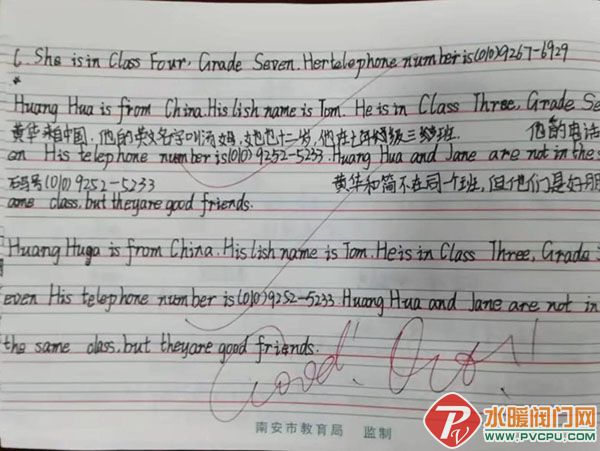 She is in Class Four, Grade Seven. Her telephone number is (010) 9267-6929
Huang Hua is from China. His lish name is Tom. He is in Class Three, Grade Se
黄华来自中国,他的英文名字叫汤姆,他也十二岁,他在七年级三班. 他的电话
His telephone number is (010) 9252-5233. Huang Hua and Jane are not in the s
号(010) 9252-5233 黄华和简不在同一个班,但他们是好朋
ame class, but they are good friends.
Huang Huga is from China. His lish name is Tom. He is in Class Three, Grade
even His telephone number is (010) 9252-5233. Huang Hua and Jane are not in
the same class, but they are good friends.
Good!
南安市教育局 监制
水暖阀门网
WWW.PVCPU.COM